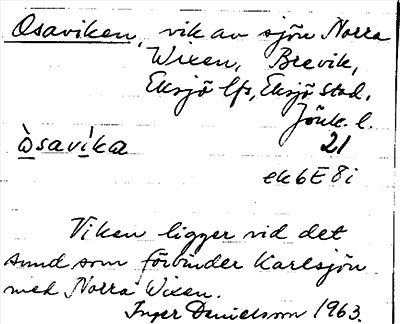 Osaviken, vik av sjön Norra
Wixen, Brevik,
Eksjö lfs, Eksjö stad,
Jönk. l.
òsavíka 21
ek 6E 8i
Viken ligger vid det
sund som förbinder Karlsjön
med Norra Wixen.
Inger Danielsson 1963.